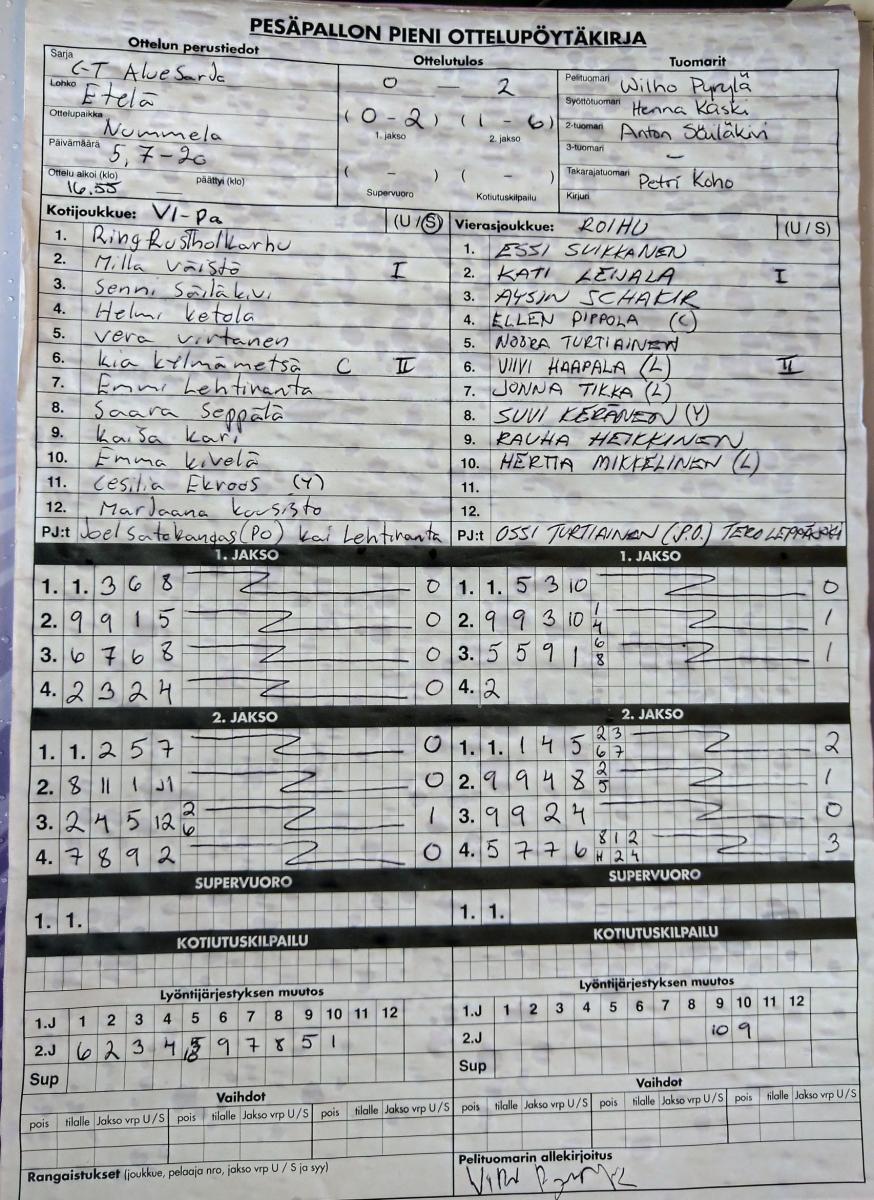 PESÄPALLON PIENI OTTELUPÖYTÄKIRJA
Ottelun perustiedot Ottelutulos Tuomarit
Sarja
Lohko Etelä
Ottelupaikka Nummela
Päivämäärä 5,7-20
Ottelu alkoi (klo) päättyi (klo)
16.55 —
0 — 2
(0 - 2) (1 - 6)
1. jakso 2. jakso
( - ) ( - )
Supervuoro Kotiutuskilpailu
Pelituomari Wilho Pyrylä
Syöttötuomari Henna Käski
2-tuomari Anton
3-tuomari —
Takarajatuomari Petri Koho
Kirjuri
Kotijoukkue: VI-Pa (U/S)
1.
2. Milla Väistö I
3. Senni Säiläkivi
4. Helmi Ketola
5. Vera Virtanen
6. Kia Kylmämetsä C II
7. Emmi Lehtiranta
8. Saara Seppälä
9. Kaisa Kari
10. Emma Kivelä
11. Cesilia Ekroos (Y)
12. Marjaana
PJ:t Joel Satokangas (PO) Kai Lehtiranta
Vierasjoukkue: ROIHU (U/S)
1. ESSI SUIKKANEN
2. KATI LEIJALA I
3. AYSIN SCHAKIR
4. ELLEN PIPPOLA (C)
5. NOORA TURTIAINEN
6. VIIVI HAAPALA (L) II
7. JONNA TIKKA (L)
8. SUVI KERÄNEN (Y)
9. RAUHA HEIKKINEN
10. HERTTA MIKKELINEN (L)
11.
12.
PJ:t OSSI TURTIAINEN (P.O.) TERO
1. JAKSO
1. 1. 3 6 8 0
2. 9 9 1 5 0
3. 6 7 6 8 0
4. 2 3 2 4 0
1. JAKSO
1. 1. 5 3 10 0
2. 9 9 3 10 1/4 1
3. 5 5 9 1 6/8 1
4. 2
2. JAKSO
1. 1. 2 5 7 0
2. 8 11 1 0
3. 2 4 5 12 2/6 1
4. 7 8 9 2 0
2. JAKSO
1. 1. 1 4 5 2/6 3/7 2
2. 9 9 4 8 2/5 1
3. 9 9 2 4 0
4. 5 7 7 6 8 1/2 2/4 3
SUPERVUORO
1. 1.
SUPERVUORO
1. 1.
KOTIUTUSKILPAILU
KOTIUTUSKILPAILU
Lyöntijärjestyksen muutos
1.J 1 2 3 4 5 6 7 8 9 10 11 12
2.J 6 2 3 4 9 7 8 5 1
Sup
Lyöntijärjestyksen muutos
1.J 1 2 3 4 5 6 7 8 9 10 11 12
2.J 10 9
Sup
Vaihdot
pois tilalle Jakso vrp U/S pois tilalle Jakso vrp U/S pois tilalle Jakso vrp U/S
Vaihdot
pois tilalle Jakso vrp U/S pois tilalle Jakso vrp U/S pois tilalle Jakso vrp U/S
Rangaistukset (joukkue, pelaaja nro, jakso vrp U / S ja syy)
Pelituomarin allekirjoitus